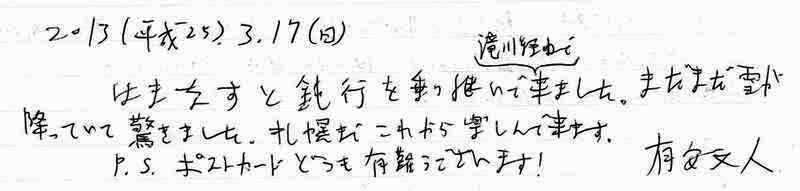 2013(平成25).3.17(日)
滝川経由で
はまなすと鈍行を乗り継いで来ました。まだまだ雪が
降っていて驚きました。札幌もこれから楽しんで来ます。
P.S. ポストカードどうも有難うございます!
有安文人